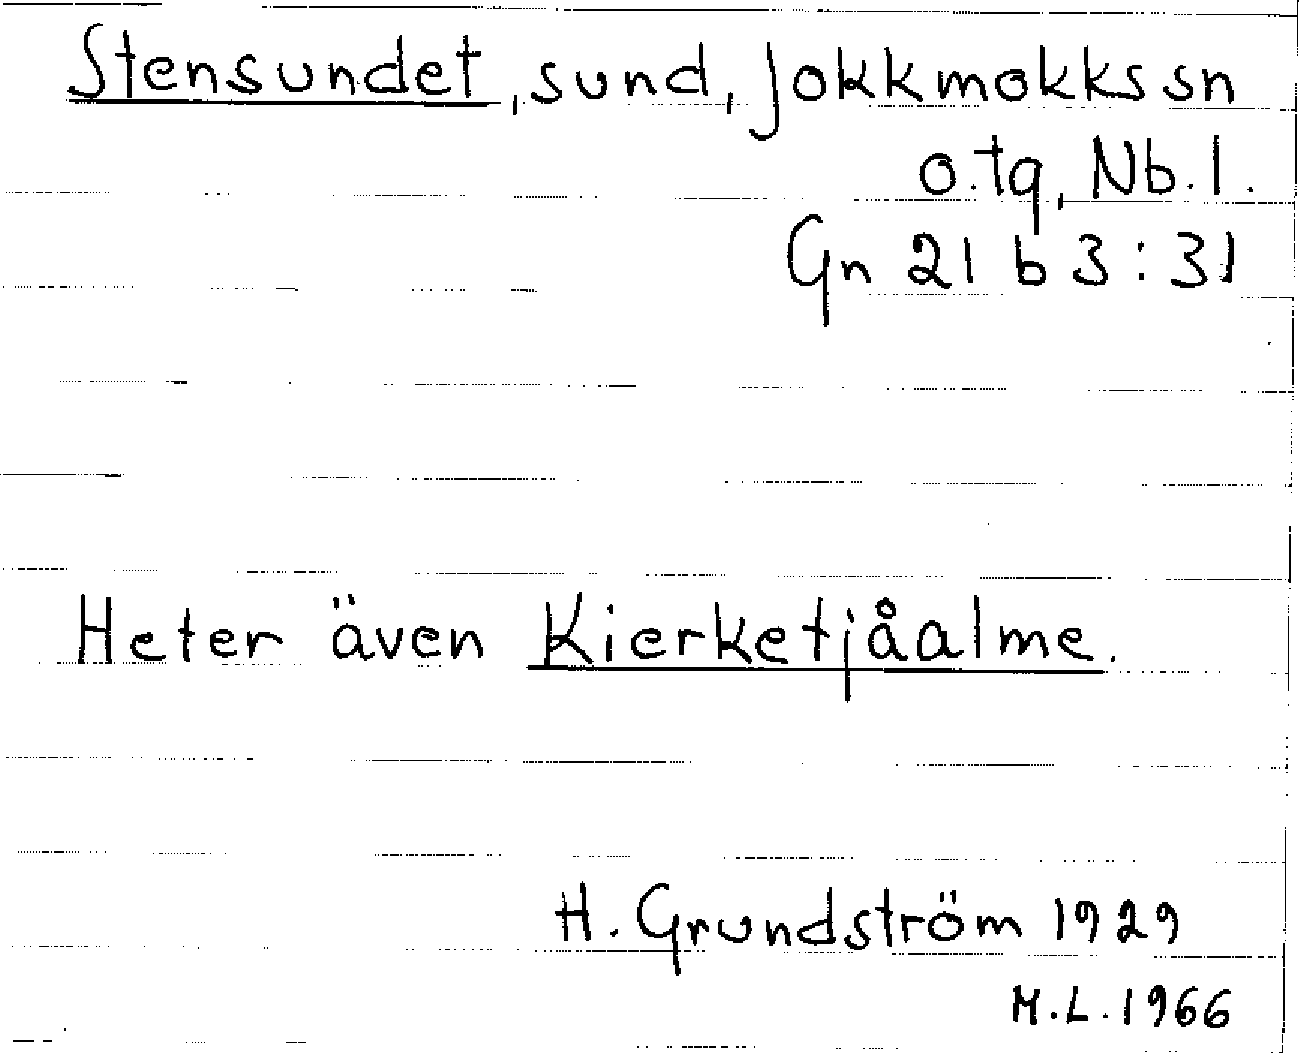 Stensundet, sund, Jokkmokks sn
o. tg, Nb. l.
Gn 21 b 3:31
Heter även Kierketjåalme.
H. Grundström 1929
M.L. 1966